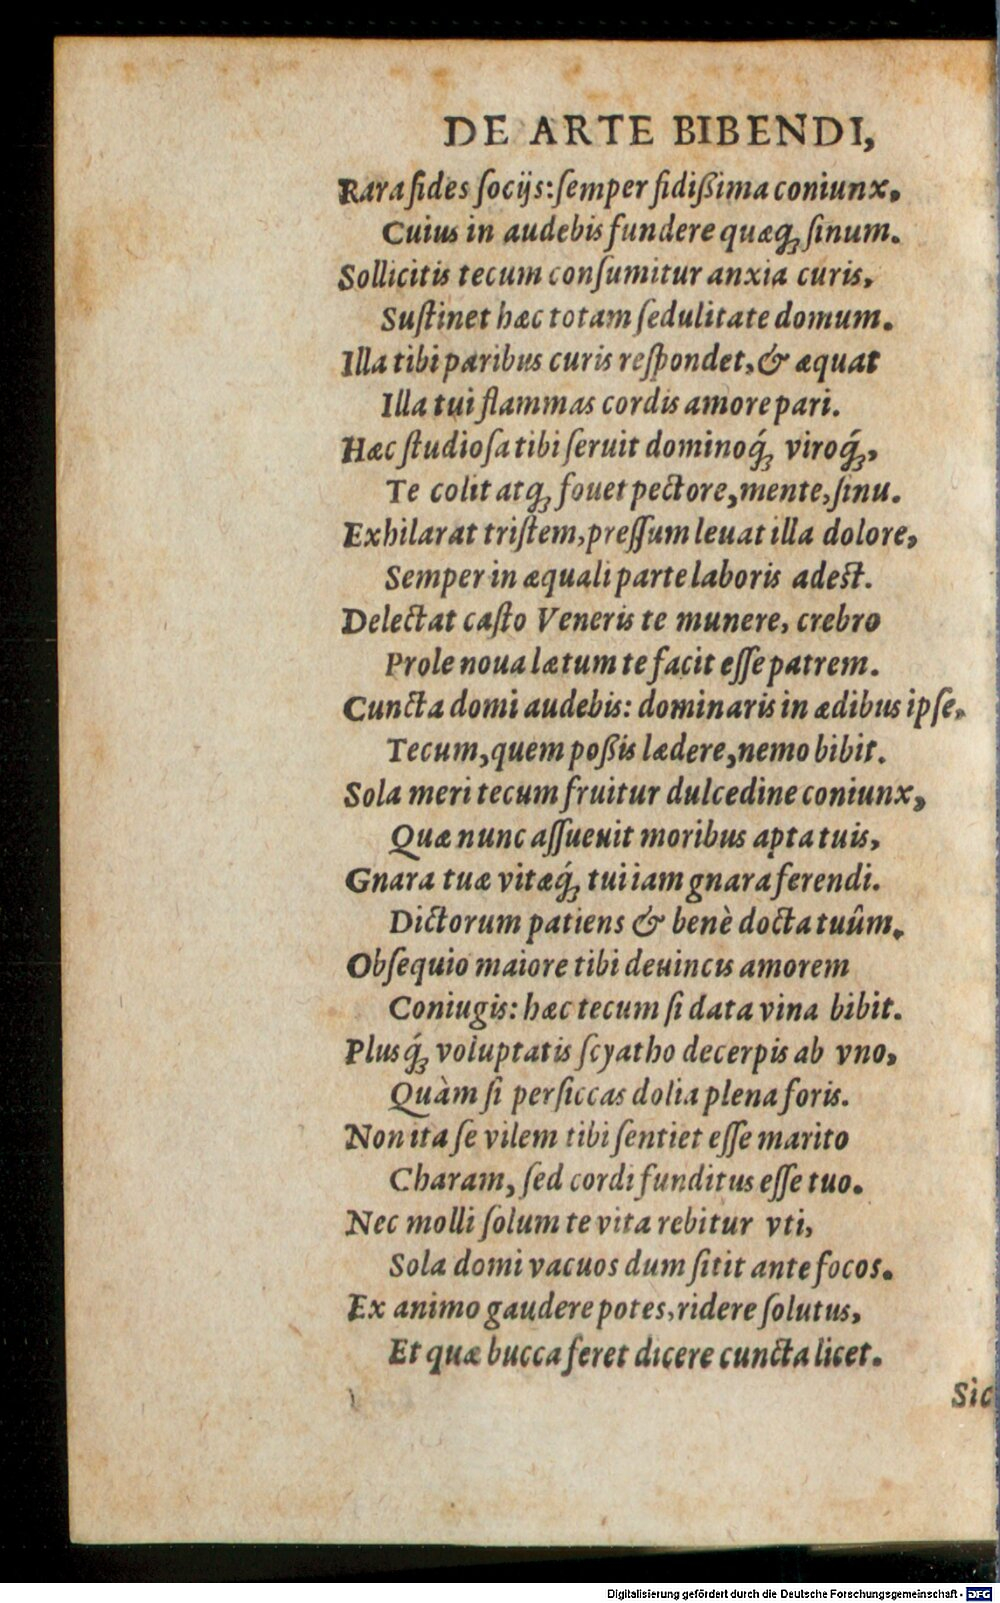 DE ARTE BIBENDI,
Rara fides socijs: semper fidißima coniunx,
Cuius in audebis fundere quæq; sinum.
Sollicitis tecum consumitur anxia curis,
Sustinet hæc totam sedulitate domum.
Illa tibi paribus curis respondet, & æquat
Illa tui flammas cordis amore pari.
Hæc studiosa tibi seruit dominoq́; viroq́;,
Te colit atq; fouet pectore, mente, sinu.
Exhilarat tristem, pressum leuat illa dolore,
Semper in æquali parte laboris adest.
Delectat casto Veneris te munere, crebro
Prole noua lætum te facit esse patrem.
Cuncta domi audebis: dominaris in ædibus ipse,
Tecum, quem poßis lædere, nemo bibit.
Sola meri tecum fruitur dulcedine coniunx,
Quæ nunc assueuit moribus apta tuis,
Gnara tuæ vitæq́; tui iam gnara ferendi.
Dictorum patiens & benè docta tuûm.
Obsequio maiore tibi deuincis amorem
Coniugis: hæc tecum si data vina bibit.
Plusq́; voluptatis scyatho decerpis ab vno,
Quàm si persiccas dolia plena foris.
Non ita se vilem tibi sentiet esse marito
Charam, sed cordi funditus esse tuo.
Nec molli solum te vita rebitur vti,
Sola domi vacuos dum sitit ante focos.
Ex animo gaudere potes, ridere solutus,
Et quæ bucca feret dicere cuncta licet.
Sic
Digitalisierung gefördert durch die Deutsche Forschungsgemeinschaft - DFG